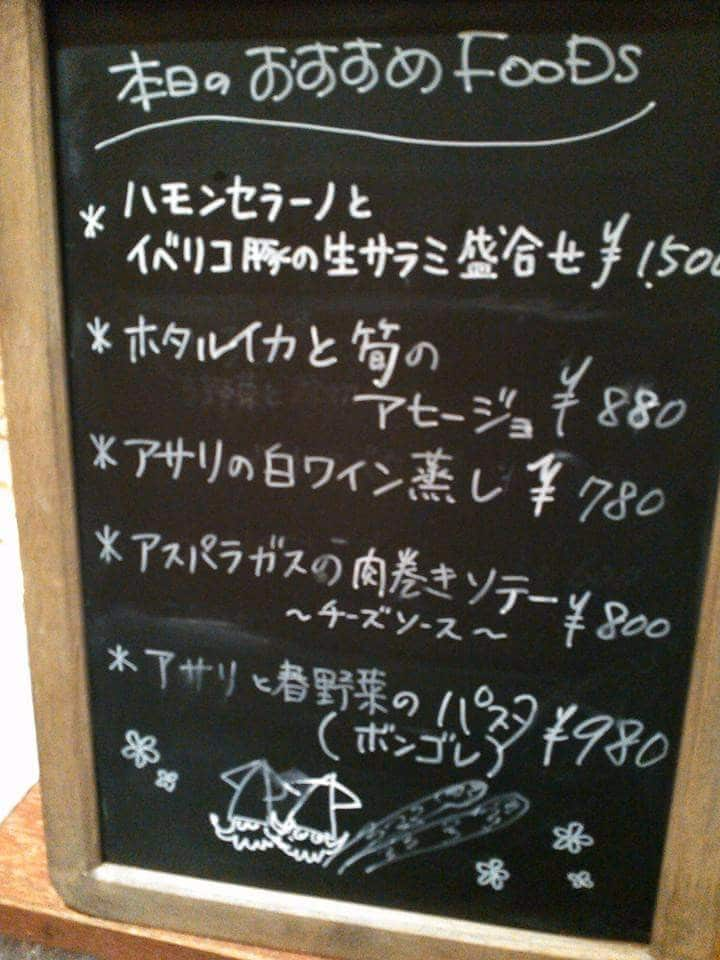 本日のおすすめFOODS
* ハモンセラーノと
イベリコ豚の生サラミ盛合せ ¥1,500
* ホタルイカと筍の
アヒージョ ¥880
* アサリの白ワイン蒸し ¥780
* アスパラガスの肉巻きソテー ¥800
～チーズソース～
* アサリと春野菜のパスタ ¥980
(ボンゴレ)